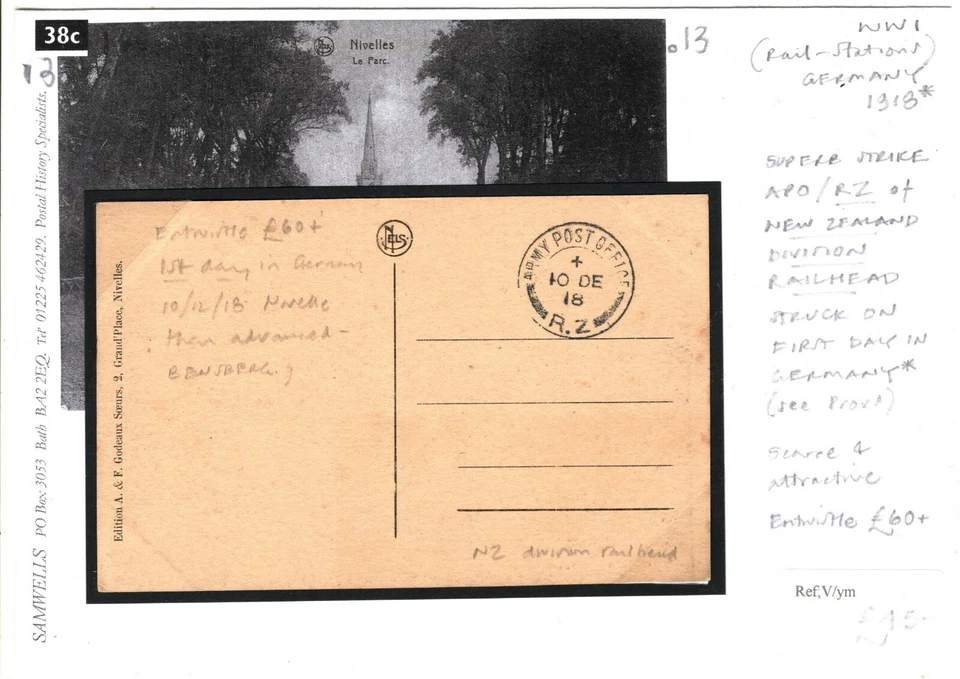 38c
13
.13
Nels
Nivelles
Le Parc.
WW1
(Rail-Stations)
GERMANY
1918*
SUPERB STRIKE
APO/RZ of
NEW ZEALAND
DIVISION
RAILHEAD
STRUCK ON
FIRST DAY IN
GERMANY*
(see Proud)
Scarce &
attractive
Entwistle £60+
Ref;V/ym
£45-
SAMWELLS PO Box 3053 Bath BA2 2EQ. Tel 01225 462429. Postal History Specialists.
Edition A. & F. Godeaux Sœurs, 2, Grand'Place, Nivelles.
Entwistle £60+
1st day in Germany
10/12/18 Nivelle
then advanced -
BENSBERG.
NELS
ARMY POST OFFICE
+
10 DE
18
R.Z
NZ division railhead